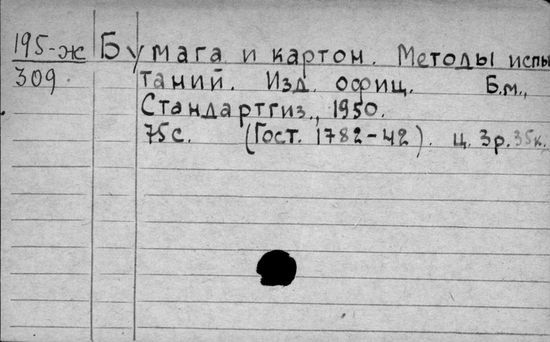 195-ж Бумага и картон. Методы испы
309. таний. Изд. офиц. Б.м.,
Стандартгиз., 1950.
75с. (Гост. 1782-42). ц. 3р.35к.